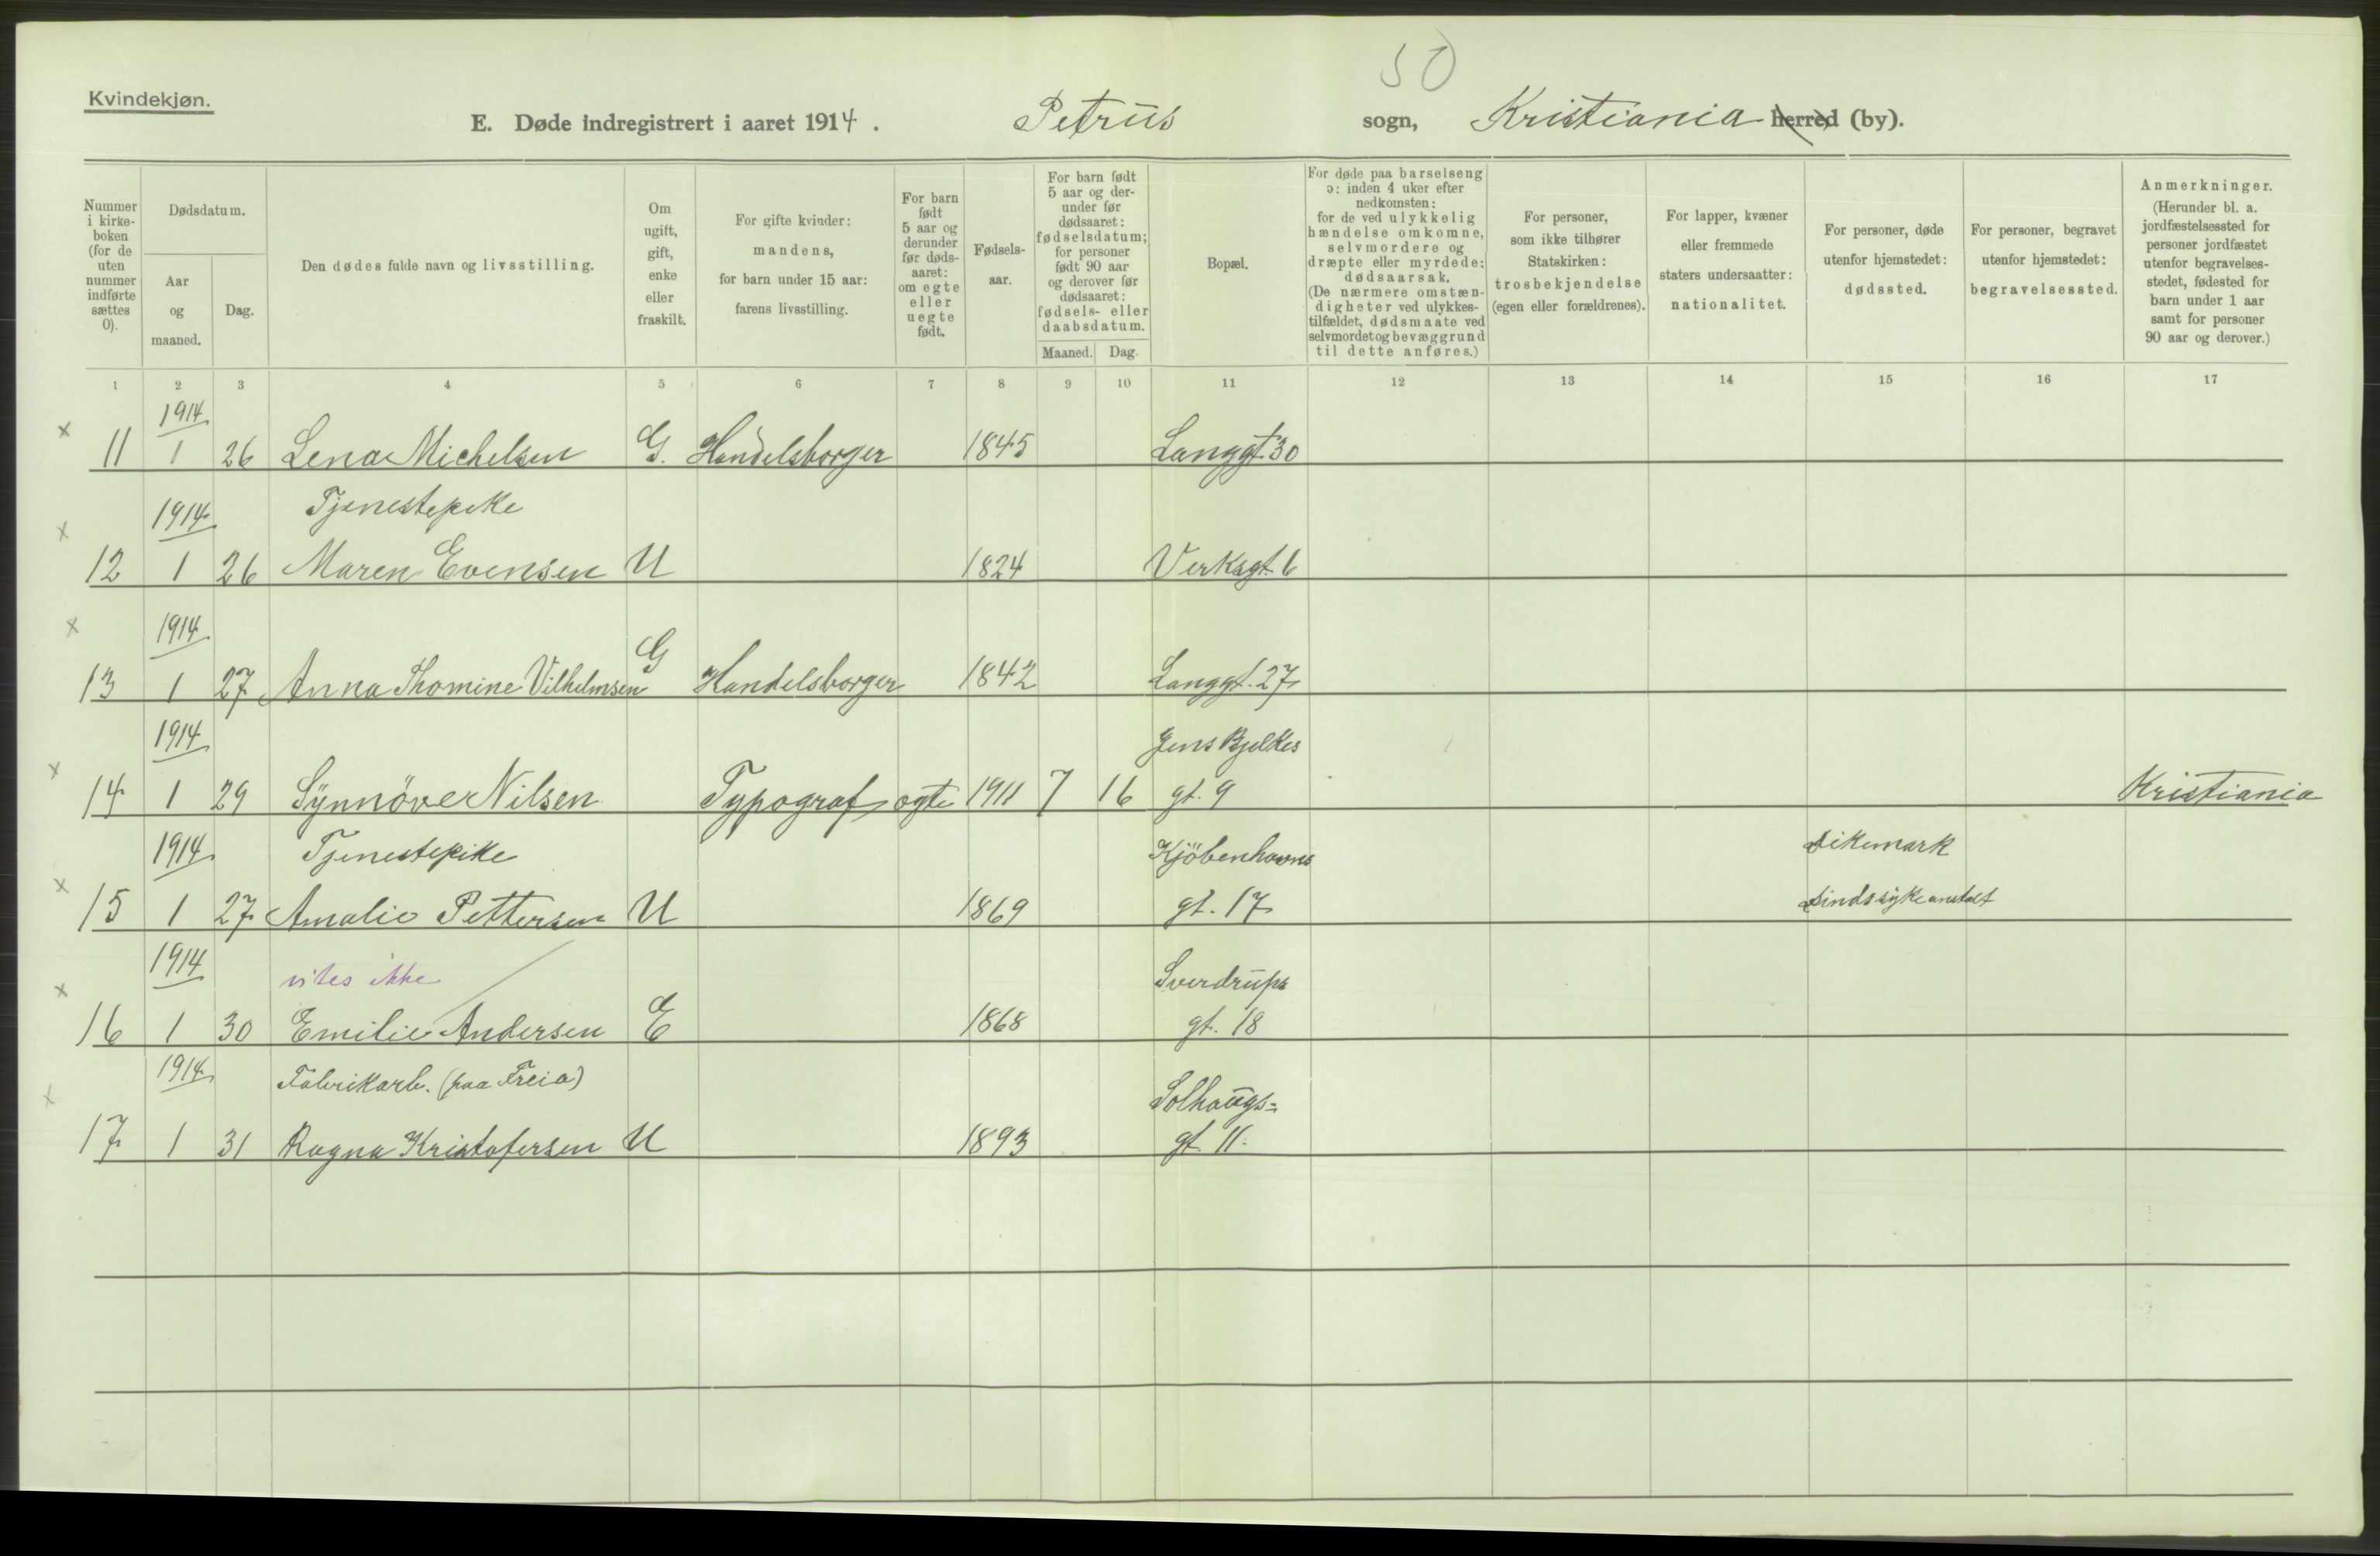 50
Kvindekjøn.
E. Døde indregistrert i aaret 1914. Petrus sogn, Kristiania herred (by).
Nummer i kirkeboken (for de uten nummer indførte sættes 0).
Dødsdatum.
Aar og maaned.
Dag.
Den dødes fulde navn og livsstilling.
Om ugift, gift, enke eller fraskilt.
For gifte kvinder: mandens, for barn under 15 aar: farens livsstilling.
For barn født 5 aar og derunder før dødsaaret: om egte eller uegte født.
Fødselsaar.
For barn født 5 aar og derunder før dødsaaret: fødselsdatum; for personer født 90 aar og derover før dødsaaret: fødsels- eller daabsdatum.
Maaned. Dag.
Bopæl.
For døde paa barselseng ɔ: inden 4 uker efter nedkomsten: for de ved ulykkelig hændelse omkomne, selvmordere og dræpte eller myrdede: dødsaarsak. (De nærmere omstændigheter ved ulykkestilfældet, dødsmaate ved selvmordet og bevæggrund til dette anføres.)
For personer, som ikke tilhører Statskirken: trosbekjendelse (egen eller forældrenes).
For lapper, kvæner eller fremmede staters undersaatter: nationalitet.
For personer, døde utenfor hjemstedet: dødssted.
For personer, begravet utenfor hjemstedet: begravelsessted.
Anmerkninger. (Herunder bl. a. jordfæstelsessted for personer jordfæstet utenfor begravelsesstedet, fødested for barn under 1 aar samt for personer 90 aar og derover.)
1 2 3 4 5 6 7 8 9 10 11 12 13 14 15 16 17
1914
x 11 1 26 Lena Michelsen G. Handelsborger 1845 Langgt 30
1914 Tjenestepike
x 12 1 26 Maren Evensen U 1824 Verksgt. 6
1914
x 13 1 27 Anna Thomine Vilhelmsen G Handelsborger 1842 Langgt. 27
1914 Jens Bjelkes
x 14 1 29 Synnöve Nilsen Typograf egte 1911 7 16 gt. 9 Kristiania
1914 Tjenestepike Kjöbenhavns Dikemark
x 15 1 27 Amalie Pettersen U 1869 gt. 17 Sindssykeanstalt
1914 vites ikke Sverdrups
x 16 1 30 Emilie Andersen E 1868 gt. 18
1914 Fabrikarb. (paa Freia) Solhaugs=
x 17 1 31 Ragna Kristofersen U 1893 gt. 11.